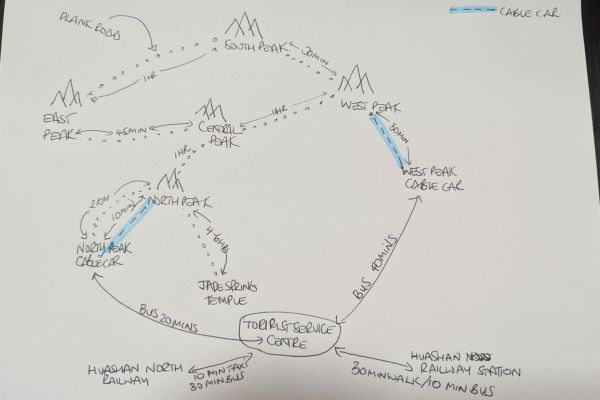 CABLE CAR
PLANK ROAD
SOUTH PEAK
30MIN
1HR
WEST PEAK
EAST
PEAK
45MIN
CENTRAL
PEAK
1HR
30MIN
1HR
WEST PEAK
CABLE CAR
2KM
10MIN
NORTH PEAK
NORTH PEAK
CABLE CAR
4-6HRS
JADE SPRING
TEMPLE
BUS 40MINS
BUS 20MINS
TOURIST SERVICE
CENTRE
HUASHAN NORTH
RAILWAY
10 MIN TAXI
30 MIN BUS
HUASHAN
RAILWAY STATION
30MIN WALK/10 MIN BUS